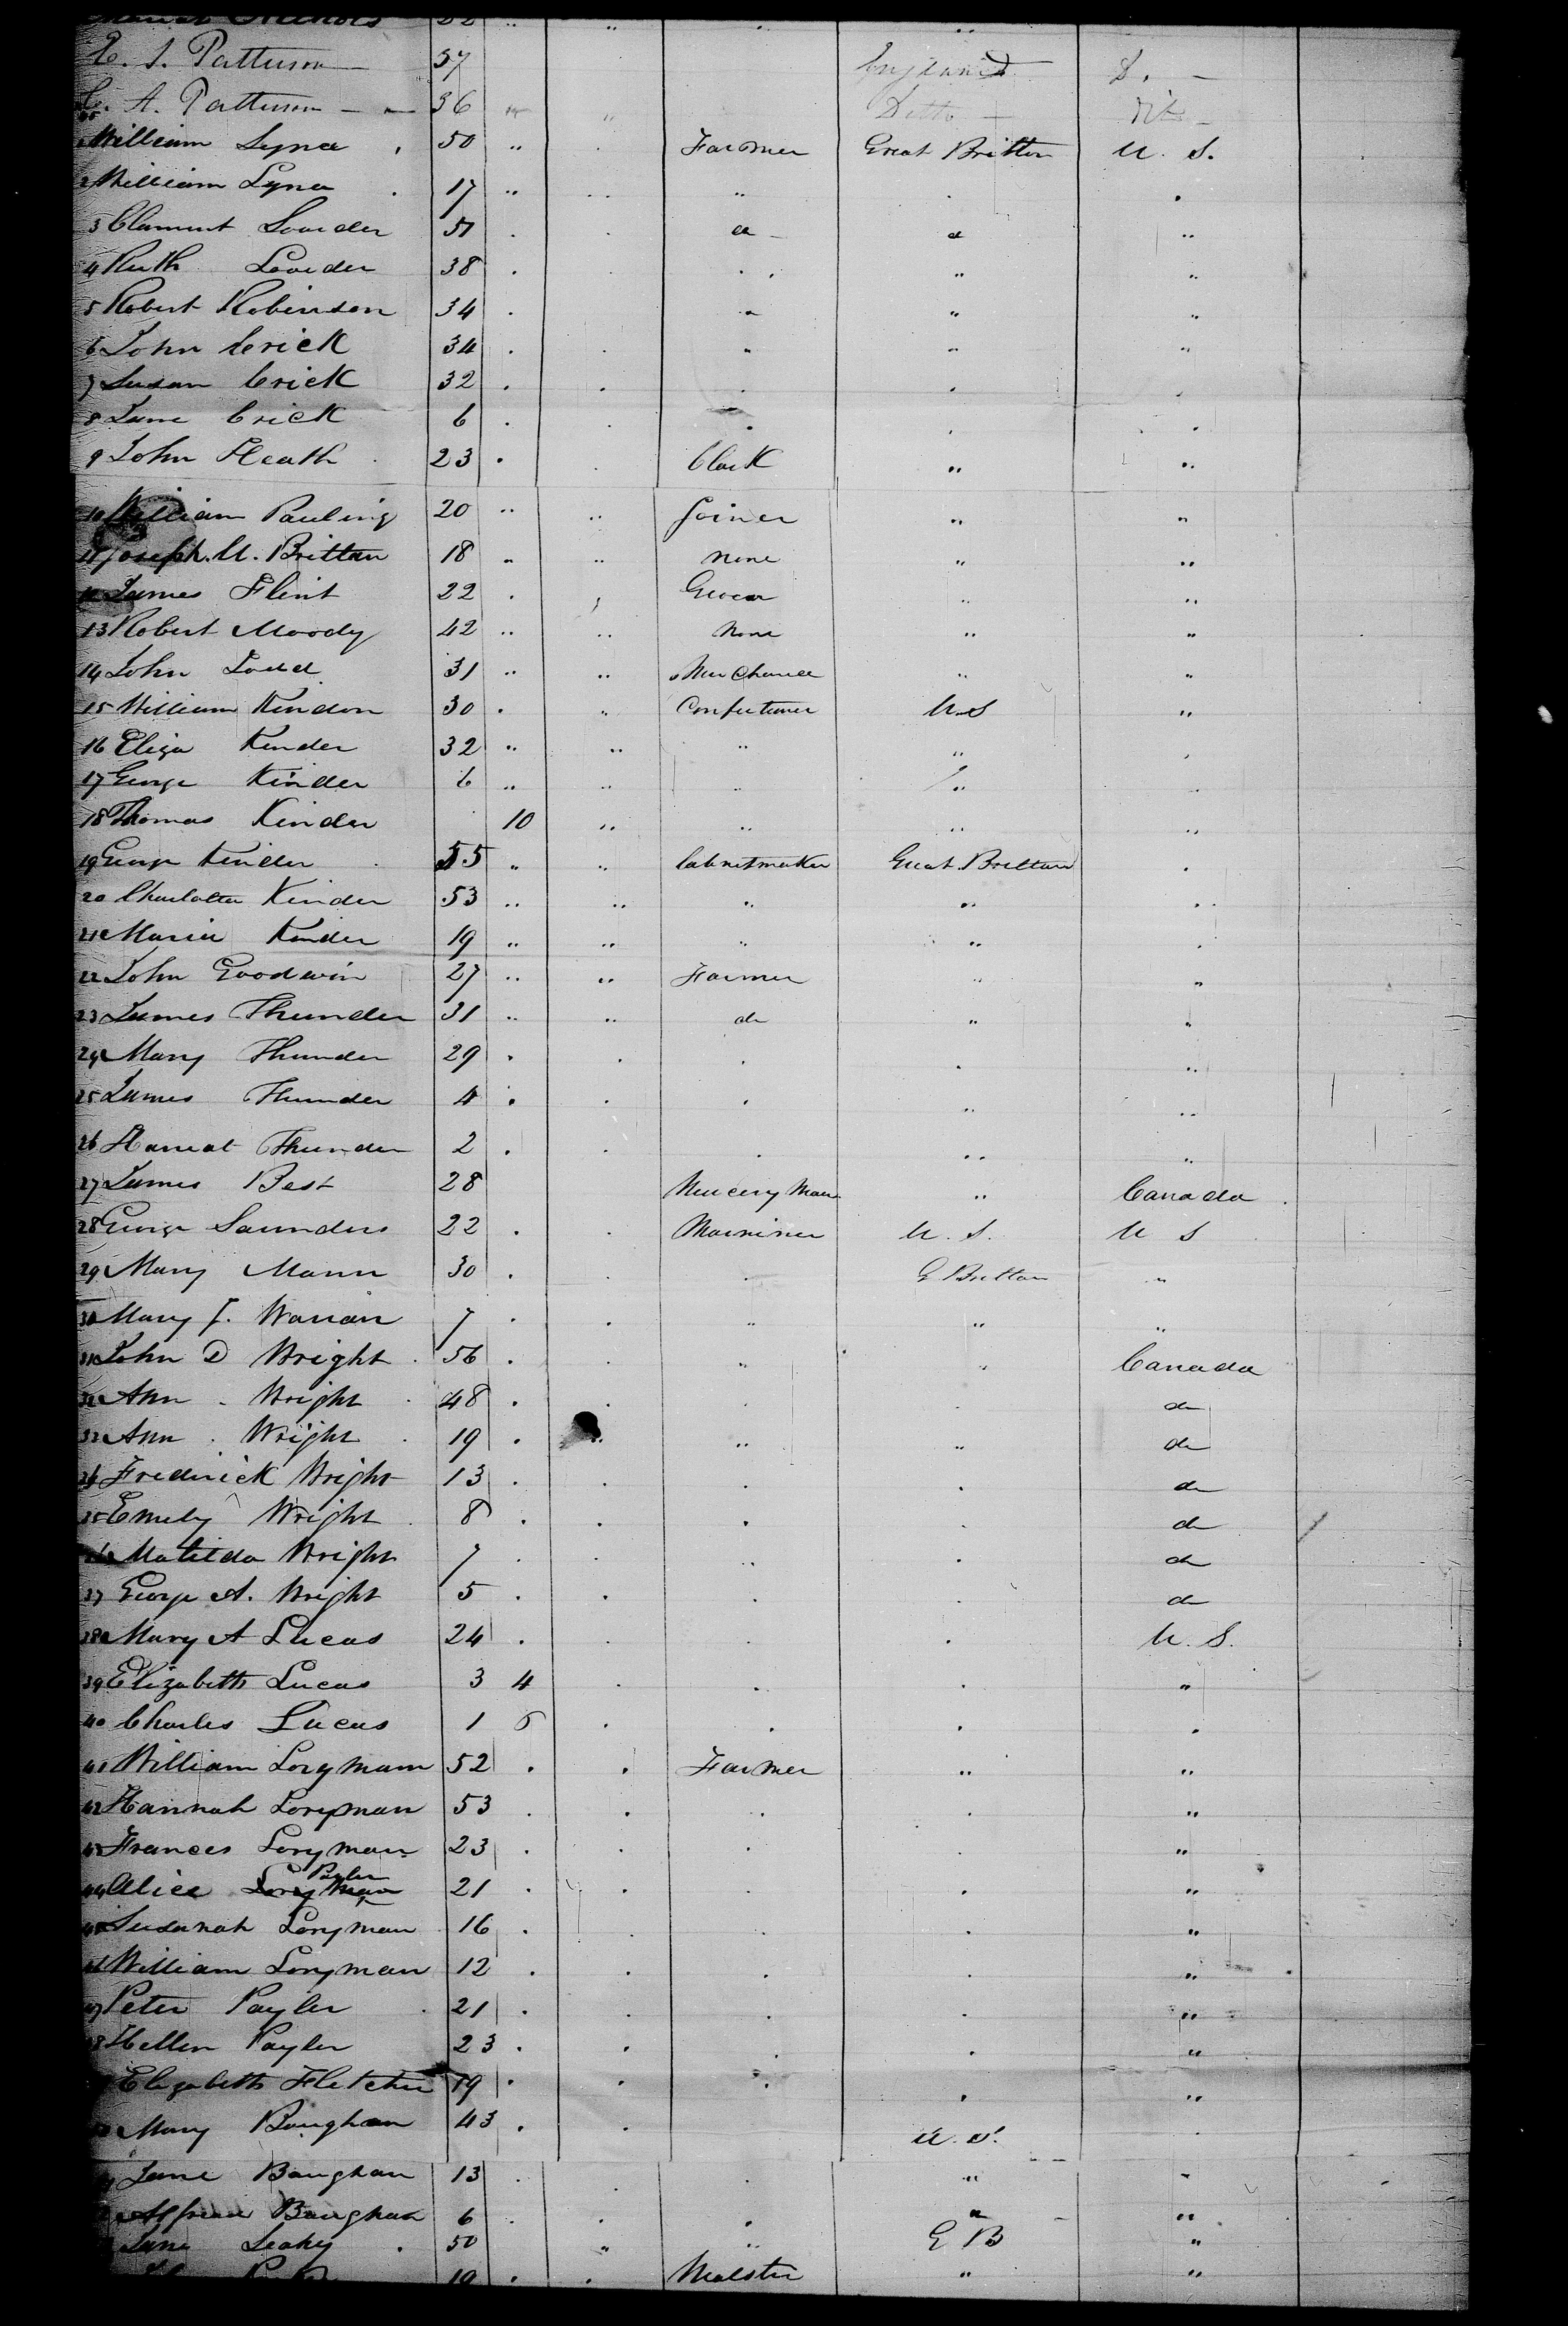 Nichols 22 " " " "
E. S. Patterson 37 England S.
C. A. Patterson 36 " " Ditto Dito
William Syna 50 " . Farmer Great Britton U. S.
2 William Syna 17 " " " . .
3 Clament Louder 51 . . a a "
4 Ruth Louder 38 . . . " "
5 Robert Robinson 34 . " " "
6 John Crick 34 . . " " "
7 Susan Crick 32 . . . . .
8 Jane Crick 6 . . . . .
9 John Heath 23 . . Clark " "
10 William Pauling 20 " " Joiner " "
11 Joseph. U. Brittan 18 " " None " "
12 James Flint 22 . , Grocer " "
13 Robert Moody 42 " " None " "
14 John Todd 31 " " " "
15 William Kindon 30 . " U.S "
16 Eliza Kinder 32 " " " " .
17 George Kinder 6 " " " " .
18 Thomas Kinder 10 " " " "
19 George Kinder 55 " " Cabnetmaker Great Brittan .
20 Charlotta Kinder 53 " " " " "
21 Maria Kinder 19 " " " " .
22 John Goodwin 27 " " Farmer " "
23 James Thunder 31 " " do " "
24 Mary Thunder 29 . . . . "
25 James Thunder 4 . . . " "
26 Harriat Thunder 2 . . . " "
27 James Best 28 Nurcery Man " Canada
28 George Saunders 22 . . Marriner U. S. U S
29 Mary Mann 30 . . . G Brittan "
30 Mary J. Warian 7 . . " " "
31 John D Wright 56 . . " " Canada
32 Ann Wright 48 . . . . do
33 Ann Wright 19 . " " " do
34 Fredirick Wright 13 . . . . do
35 Emely Wright 8 . . . . do
36 Matilda Wright 7 . . " . do
37 George A. Wright 5 . . . . do
38 Mary A Lucas 24 . . . . U. S.
39 Elizabeth Lucas 3 4 . . . "
40 Charles Lucas 1 6 . . . .
41 William Longman 52 . . Farmer " "
42 Hannah Longman 53 . . . . "
43 Frances Longman 23 . . . "
44 Alice Longman Payler 21 . . . "
45 Susanah Longman 16 . . . . "
46 William Longman 12 . . . . "
47 Peter Payler 21 . . . . "
48 Hellen Payler 23 . . . . "
Elizabeth Fletcher 19 . . . . "
Mary Baughan 43 . . U. S. .
Jane Baughan 13 . . . " "
Alfread Baughan 6 . . . " "
Jane Leahy 50 " " G B "
19 . . Malster " "